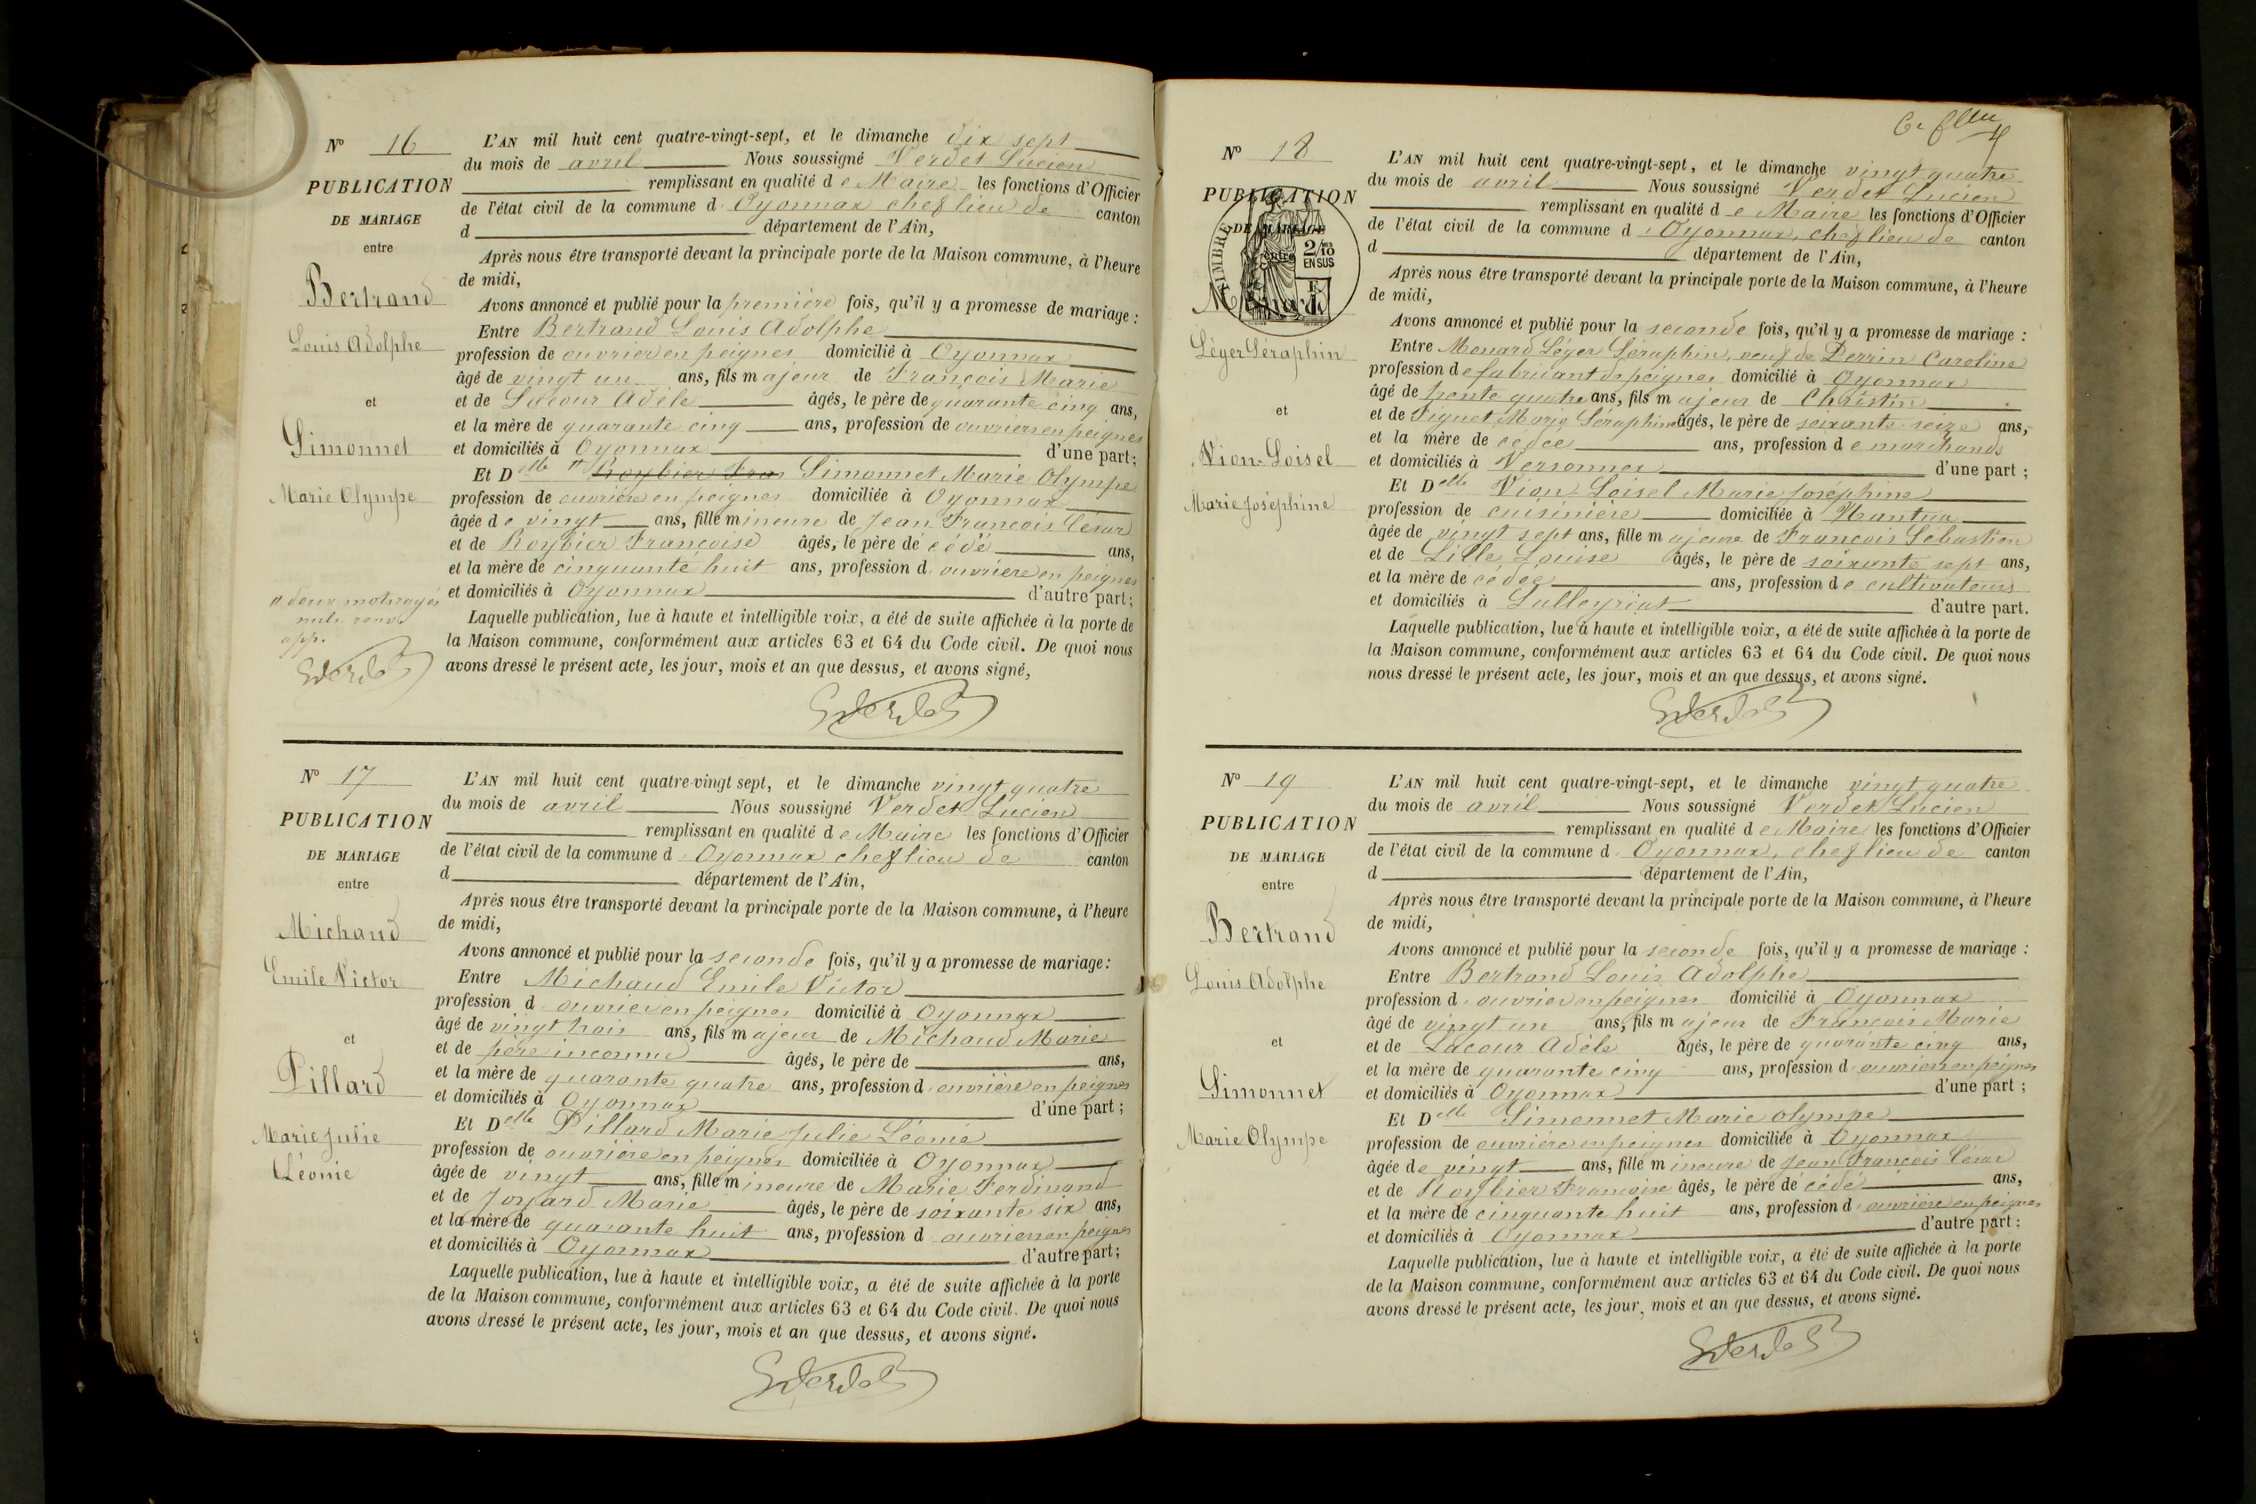 N° 16
PUBLICATION
DE MARIAGE
entre
Bertrand
Louis Adolphe
et
Simonnet
Marie Olympe
L'AN mil huit cent quatre-vingt-sept, et le dimanche dix sept
du mois de avril Nous soussigné Verdet Lucien
remplissant en qualité de Maire les fonctions d'Officier
de l'état civil de la commune d'Oyonnax chef lieu de canton
d département de l'Ain,
Après nous être transporté devant la principale porte de la Maison commune, à l'heure
de midi,
Avons annoncé et publié pour la première fois, qu'il y a promesse de mariage :
Entre Bertrand Louis Adolphe
profession de ouvrier en peignes domicilié à Oyonnax
âgé de vingt un ans, fils majeur de François Marie
et de Lacour Adèle âgés, le père de quarante cinq ans,
et la mère de quarante cinq ans, profession de ouvriers en peignes
et domiciliés à Oyonnax d'une part ;
Et Delle Roybier Fra Simonnet Marie Olympe
profession de ouvrière en peignes domiciliée à Oyonnax
âgée de vingt ans, fille mineure de Jean François César
et de Roybier Françoise âgés, le père décédé ans,
et la mère de cinquante huit ans, profession d'ouvrière en peignes
et domiciliés à Oyonnax d'autre part ;
Laquelle publication, lue à haute et intelligible voix, a été de suite affichée à la porte de
la Maison commune, conformément aux articles 63 et 64 du Code civil. De quoi nous
avons dressé le présent acte, les jour, mois et an que dessus, et avons signé,
deux mots rayés
nuls
app.
N° 17
PUBLICATION
DE MARIAGE
entre
Michaud
Emile Victor
et
Pillard
Marie Julie
Léonie
L'AN mil huit cent quatre-vingt sept, et le dimanche vingt quatre
du mois de avril Nous soussigné Verdet Lucien
remplissant en qualité de Maire les fonctions d'Officier
de l'état civil de la commune d'Oyonnax chef lieu de canton
d département de l'Ain,
Après nous être transporté devant la principale porte de la Maison commune, à l'heure
de midi,
Avons annoncé et publié pour la seconde fois, qu'il y a promesse de mariage :
Entre Michaud Emile Victor
profession d'ouvrier en peignes domicilié à Oyonnax
âgé de vingt trois ans, fils majeur de Michaud Marie
et de père inconnu âgés, le père de ans,
et la mère de quarante quatre ans, profession d'ouvrière en peignes
et domiciliés à Oyonnax d'une part ;
Et Delle Pillard Marie Julie Léonie
profession de ouvrière en peignes domiciliée à Oyonnax
âgée de vingt ans, fille mineure de Marie Ferdinand
et de Joyard Marie âgés, le père de soixante six ans,
et la mère de quarante huit ans, profession d'ouvriers en peignes
et domiciliés à Oyonnax d'autre part ;
Laquelle publication, lue à haute et intelligible voix, a été de suite affichée à la porte
de la Maison commune, conformément aux articles 63 et 64 du Code civil. De quoi nous
avons dressé le présent acte, les jour, mois et an que dessus, et avons signé.
N° 18
PUBLICATION
DE MARIAGE
entre
TIMBRE
2/10
EN SUS
Léger Séraphin
et
Vion-Loisel
Marie Joséphine
L'AN mil huit cent quatre-vingt-sept, et le dimanche vingt quatre
du mois de avril Nous soussigné Verdet Lucien
remplissant en qualité de Maire les fonctions d'Officier
de l'état civil de la commune d'Oyonnax, chef lieu de canton
d département de l'Ain,
Après nous être transporté devant la principale porte de la Maison commune, à l'heure
de midi,
Avons annoncé et publié pour la seconde fois, qu'il y a promesse de mariage :
Entre Monard Léger Séraphin, veuf de Perrin Caroline
profession de fabricant de peignes domicilié à Oyonnax
âgé de trente quatre ans, fils majeur de Christin
et de Marie Séraphine âgés, le père de soixante seize ans,
et la mère décédée ans, profession de marchands
et domiciliés à Versonnex d'une part ;
Et Delle Vion-Loisel Marie Joséphine
profession de cuisinière domiciliée à Nantua
âgée de vingt sept ans, fille majeure de François Sébastien
et de Lille Louise âgés, le père de soixante sept ans,
et la mère décédée ans, profession de cultivateurs
et domiciliés à Lalleyriat d'autre part.
Laquelle publication, lue à haute et intelligible voix, a été de suite affichée à la porte de
la Maison commune, conformément aux articles 63 et 64 du Code civil. De quoi nous
nous dressé le présent acte, les jour, mois et an que dessus, et avons signé.
N° 19
PUBLICATION
DE MARIAGE
entre
Bertrand
Louis Adolphe
et
Simonnet
Marie Olympe
L'AN mil huit cent quatre-vingt-sept, et le dimanche vingt quatre
du mois de avril Nous soussigné Verdet Lucien
remplissant en qualité de Maire les fonctions d'Officier
de l'état civil de la commune d'Oyonnax, chef lieu de canton
d département de l'Ain,
Après nous être transporté devant la principale porte de la Maison commune, à l'heure
de midi,
Avons annoncé et publié pour la seconde fois, qu'il y a promesse de mariage :
Entre Bertrand Louis Adolphe
profession d'ouvrier en peignes domicilié à Oyonnax
âgé de vingt un ans, fils majeur de François Marie
et de Lacour Adèle âgés, le père de quarante cinq ans,
et la mère de quarante cinq ans, profession d'ouvriers en peignes
et domiciliés à Oyonnax d'une part ;
Et Delle Simonnet Marie Olympe
profession de ouvrière en peignes domiciliée à Oyonnax
âgée de vingt ans, fille mineure de Jean François César
et de Roybier Françoise âgés, le père décédé ans,
et la mère de cinquante huit ans, profession d'ouvrière en peignes
et domiciliés à Oyonnax d'autre part :
Laquelle publication, lue à haute et intelligible voix, a été de suite affichée à la porte
de la Maison commune, conformément aux articles 63 et 64 du Code civil. De quoi nous
avons dressé le présent acte, les jour, mois et an que dessus, et avons signé.